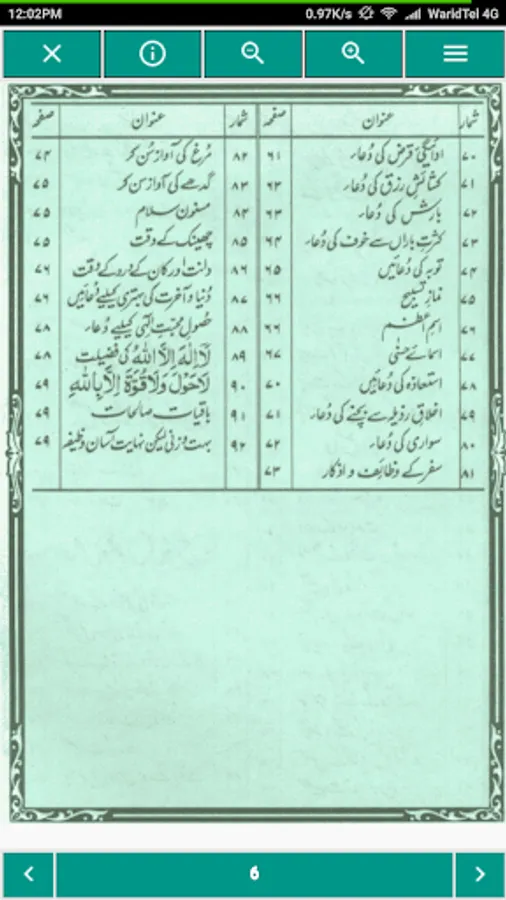 12:02PM 0.97K/s WaridTel 4G
شمار عنوان صفحہ
۷۰ ادائیگئ قرض کی دُعار ۶۱
۷۱ کشائشِ رزق کی دُعار ۶۳
۷۲ بارش کی دُعار ۶۳
۷۳ کثرتِ باراں سے خوف کی دُعار ۶۴
۷۴ توبہ کی دُعائیں ۶۵
۷۵ نمازِ تسبیح ۶۶
۷۶ اسمِ اعظم ۶۶
۷۷ اسمائے حسنٰی ۶۷
۷۸ استعاذہ کی دُعائیں ۷۰
۷۹ اخلاقِ رذیلہ سے بچنے کی دُعار ۷۱
۸۰ سواری کی دُعار ۷۲
۸۱ سفر کے وظائف و اذکار ۷۳
شمار عنوان صفحہ
۸۲ مُرغ کی آواز سُن کر ۷۴
۸۳ گدھے کی آواز سن کر ۷۵
۸۴ مسنون سلام ۷۵
۸۵ چھینک کے وقت ۷۵
۸۶ دانت اور کان کے درد کے وقت ۷۶
۸۷ دُنیا و آخرت کی بہتری کیلئے دُعائیں ۷۶
۸۸ حصولِ محبّتِ الٰہی کیلئے دُعار ۷۸
۸۹ لَآ اِلٰهَ اِلَّا اللهُ کی فضیلت ۷۸
۹۰ لَاحَوْلَ وَلَا قُوَّةَ اِلَّا بِاللهِ ۷۹
۹۱ باقیات صالحات ۷۹
۹۲ بہت وزنی لیکن نہایت آسان وظیفہ ۷۹
6